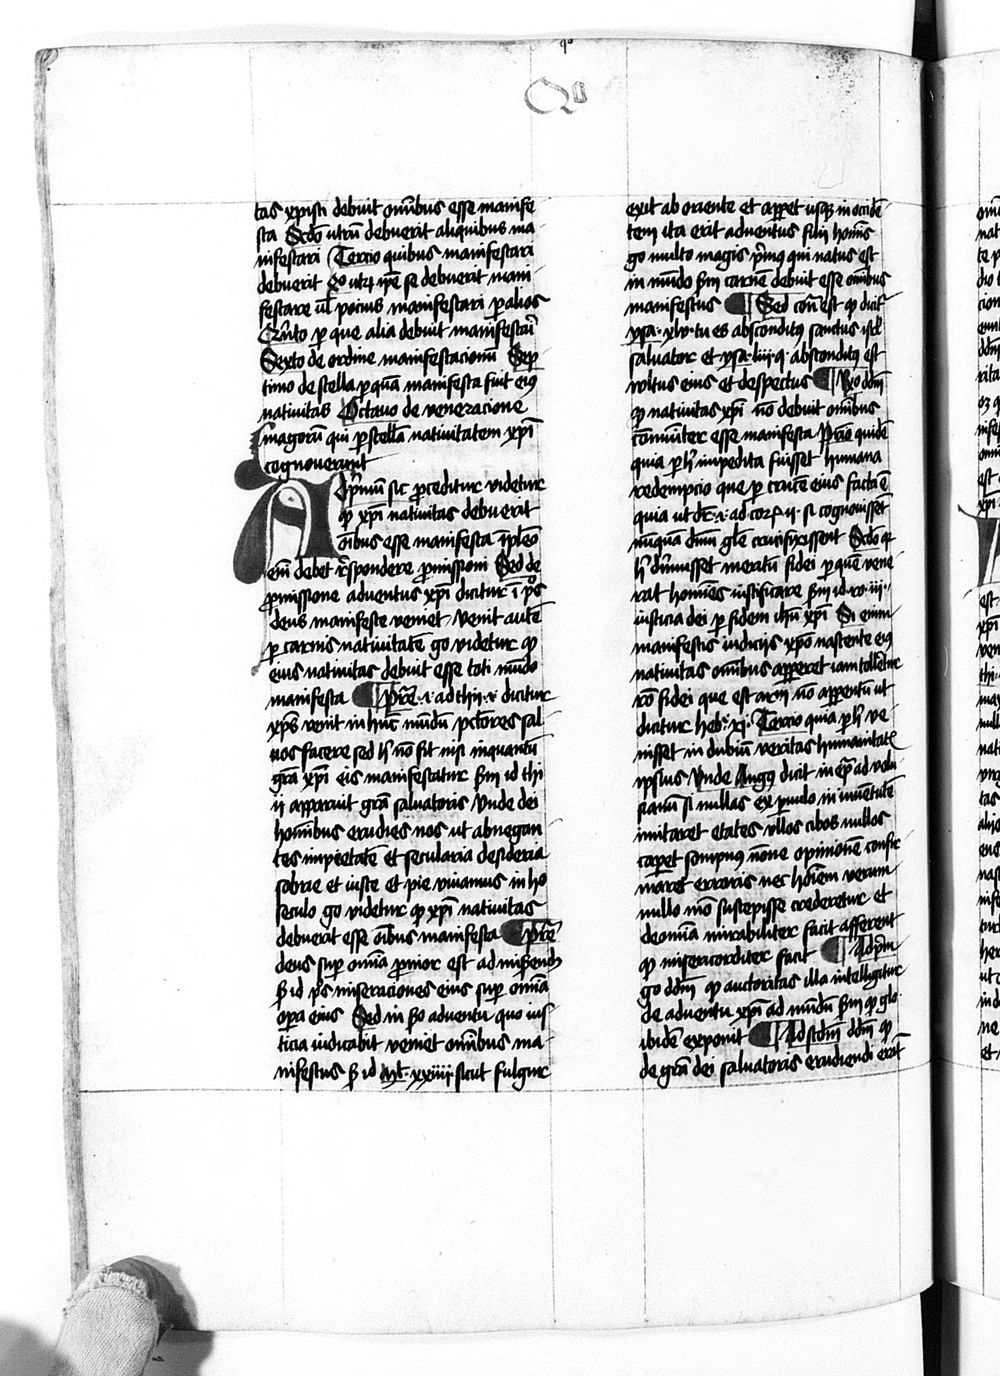 Qo
tas xpisti debuit om̄ibus esse manife
sta Scdo utrū debuerit aliquibus ma
nifestari Tercio quibus manifestari
debuerit 4o utrū ipē se debuerit mani
festare uł pocius manifestari p alios
Qrīto p que alia debuit manifestari
Sexto de ordine manifestacionū Sep
timo de stella p quā manifesta fuit eius
nativitas Octavo de veneracione
magorū qui p stellā nativitatem xpī
cognoverunt
Ad primū sic proceditur videtur
qp xpī nativitas debuerit
oībus esse manifesta īpleō
enī debet respondere promissioni Sed de
promissione adventus xpī dicitur ī ps
deus manifeste veniet venit autē
p carnis nativitatē go videtur qp
eius nativitas debuit esse toti mūdo
manifesta prē i ad thī i dicitur
xps venit in hūc mūdū pctores sal
vos facere sed h nō fit nisi inquantū
gr̄a xpī eis manifestatur sm id thi
ii apparuit grā salvatoris Unde dei
hoībus erudiēs nos ut abnegan
tes impietatē et secularia desideria
sobrie et iuste et pie vivamus in ho
seculo go videtur qp xpī nativitas
debuerit esse oībus manifesta prē
deus sup omīa prnior est ad misrend
s id ps miseraciones eius sup omīa
opa eius Sed in so adventu quo ius
ticia iudicabit veniet omībus ma
nifestus s id mt xxiiii sicut fulgur
exit ab oriente et apparet usq in occidē
tem ita erit adventus filii homīs
go multo magis prīmus qui natus est
in mūdo sm carnē debuit esse omībus
manifestus Sed con est qp dicit
ysa xlv tu es absconditus sanctus isrl
salvator et ysa liii q absconditus est
voltus eius et despectus Rio ddm
qp nativitas xpī nō debuit omībus
cōmuniter esse manifesta Prīo quidē
quia p h impedita fuisset humana
redempcio que p crucē eius facta ē
quia ut dr i ad cor ii si cognovissēt
nūqua dnm glē crucifixissent Scdo qr
h dīmuisset meritū fidei p quē vene
rat homīes iustificare sm id ro iii
iusticia dei p fidem ihu xpī Si enim
manifestis indiciis xpō nascente eius
nativitas omībus appareret iam tolleretur
rō fidei que est arm nō apparentū ut
dicitur heb xi Tercio quia p h ve
nisset in dubiū veritas humanitatis
ipsius Unde Augus dicit in epla ad volu
sianū si nullas ex puulo in iuventutē
mutaret etates nllos cibos nullos
capet sompnos nōne opinionē confir
maret erroris nec hoīem verum
nullo mō suscepisse crederetur et
de omīa mirabiliter facit afferent
qp misericorditer facit Ad prm
go ddm qp auctoritas illa intelligitur
de adventu xpī ad mūdū sm qp glo
ibidē exponit Ad scdm ddm qp
de grā dei salvatoris erudiendi erāt